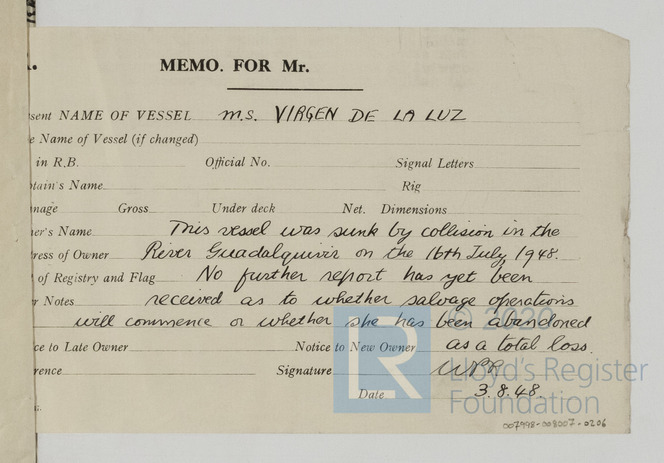 MEMO. FOR Mr.
sent NAME OF VESSEL M.S. VIRGEN DE LA LUZ
e Name of Vessel (if changed)
in R.B. Official No. Signal Letters
tain's Name Rig
nage Gross Under deck Net. Dimensions
er's Name This vessel was sunk by collision in the
ress of Owner River Guadalquivir on the 16th July 1948.
of Registry and Flag No further report has yet been
r Notes received as to whether salvage operations
will commence or whether she has been abandoned
ce to Late Owner Notice to New Owner as a total loss.
rence Signature WPR
Date 3.8.48.
LR
© 2020
Lloyd's Register
Foundation
007998-008007-0206